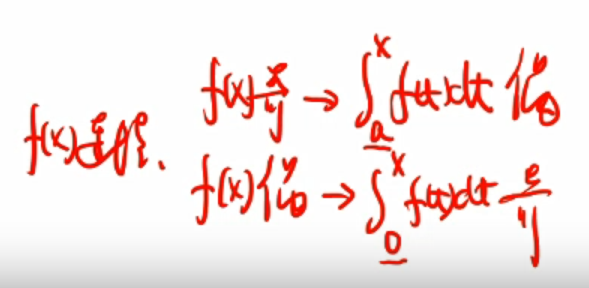 f(x)连续.
f(x)奇 → ∫ₐˣ f(t)dt 偶
f(x)偶 → ∫₀ˣ f(t)dt 奇